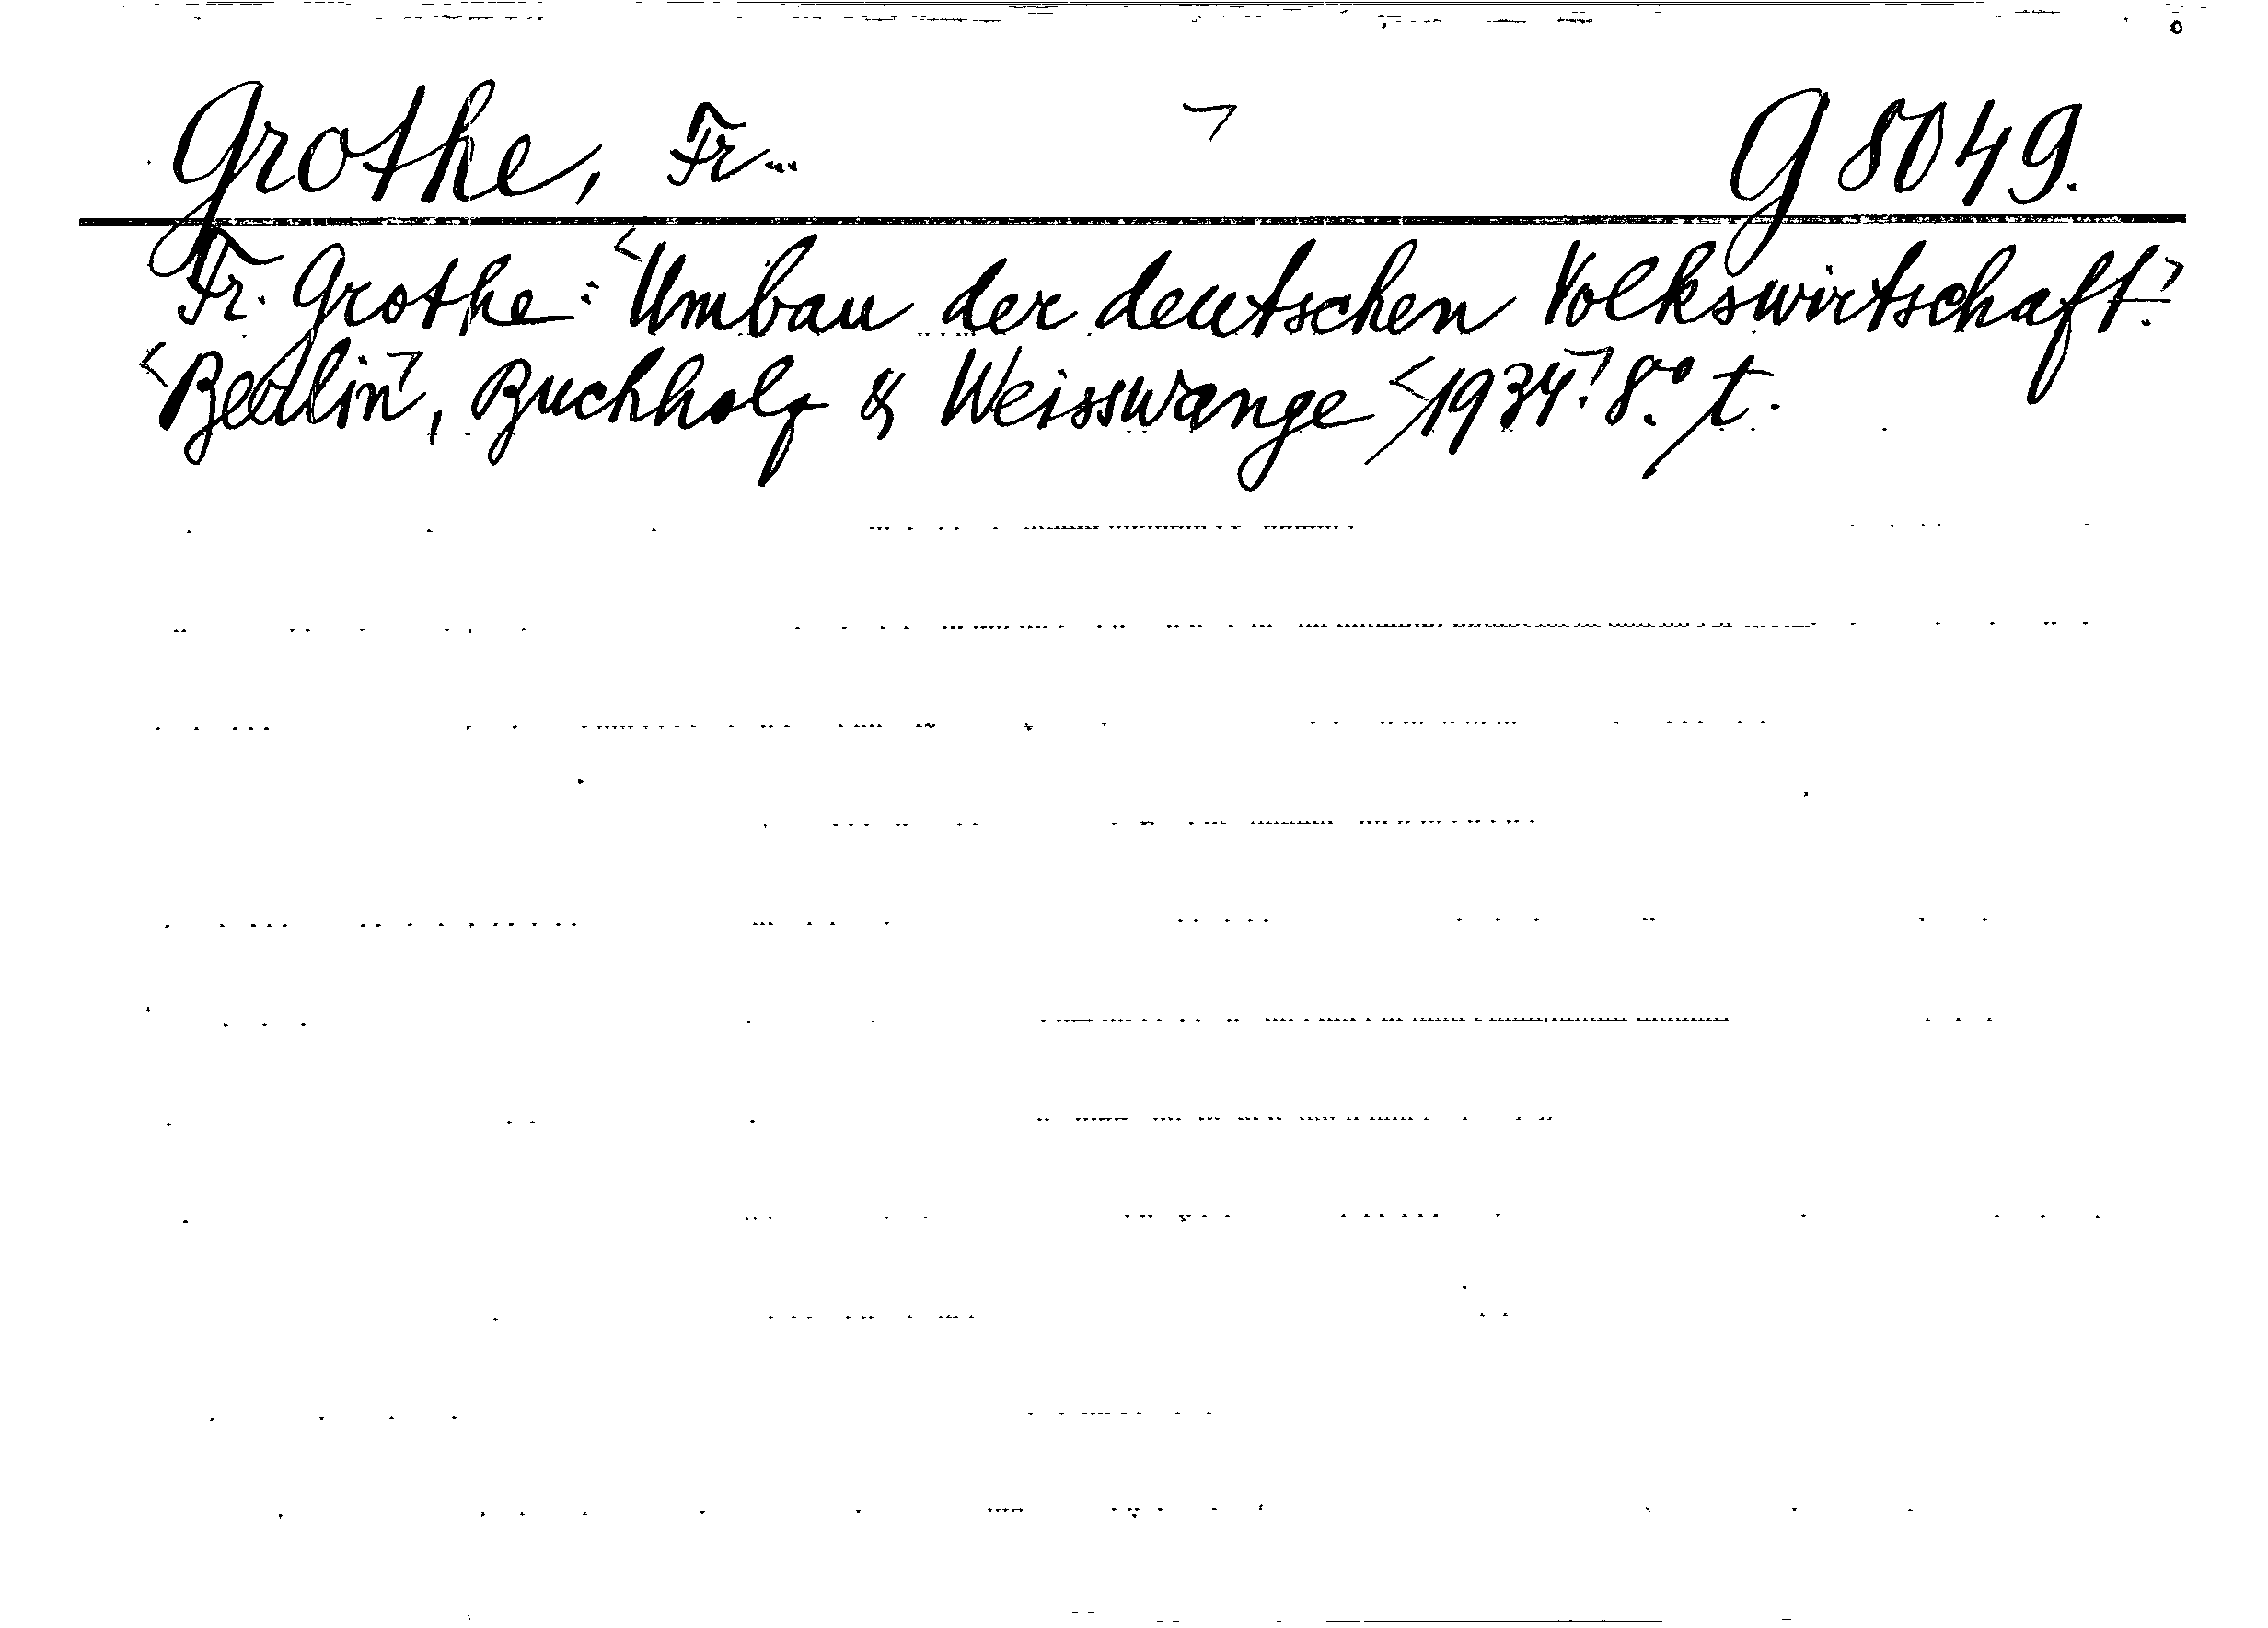 Grothe, Fr... ¬ G 8049.
Fr. Grothe: <Umbau der deutschen Volkswirtschaft.>
<Berlin¬, Buchholz & Weisswange <1934¬. 8.° t.